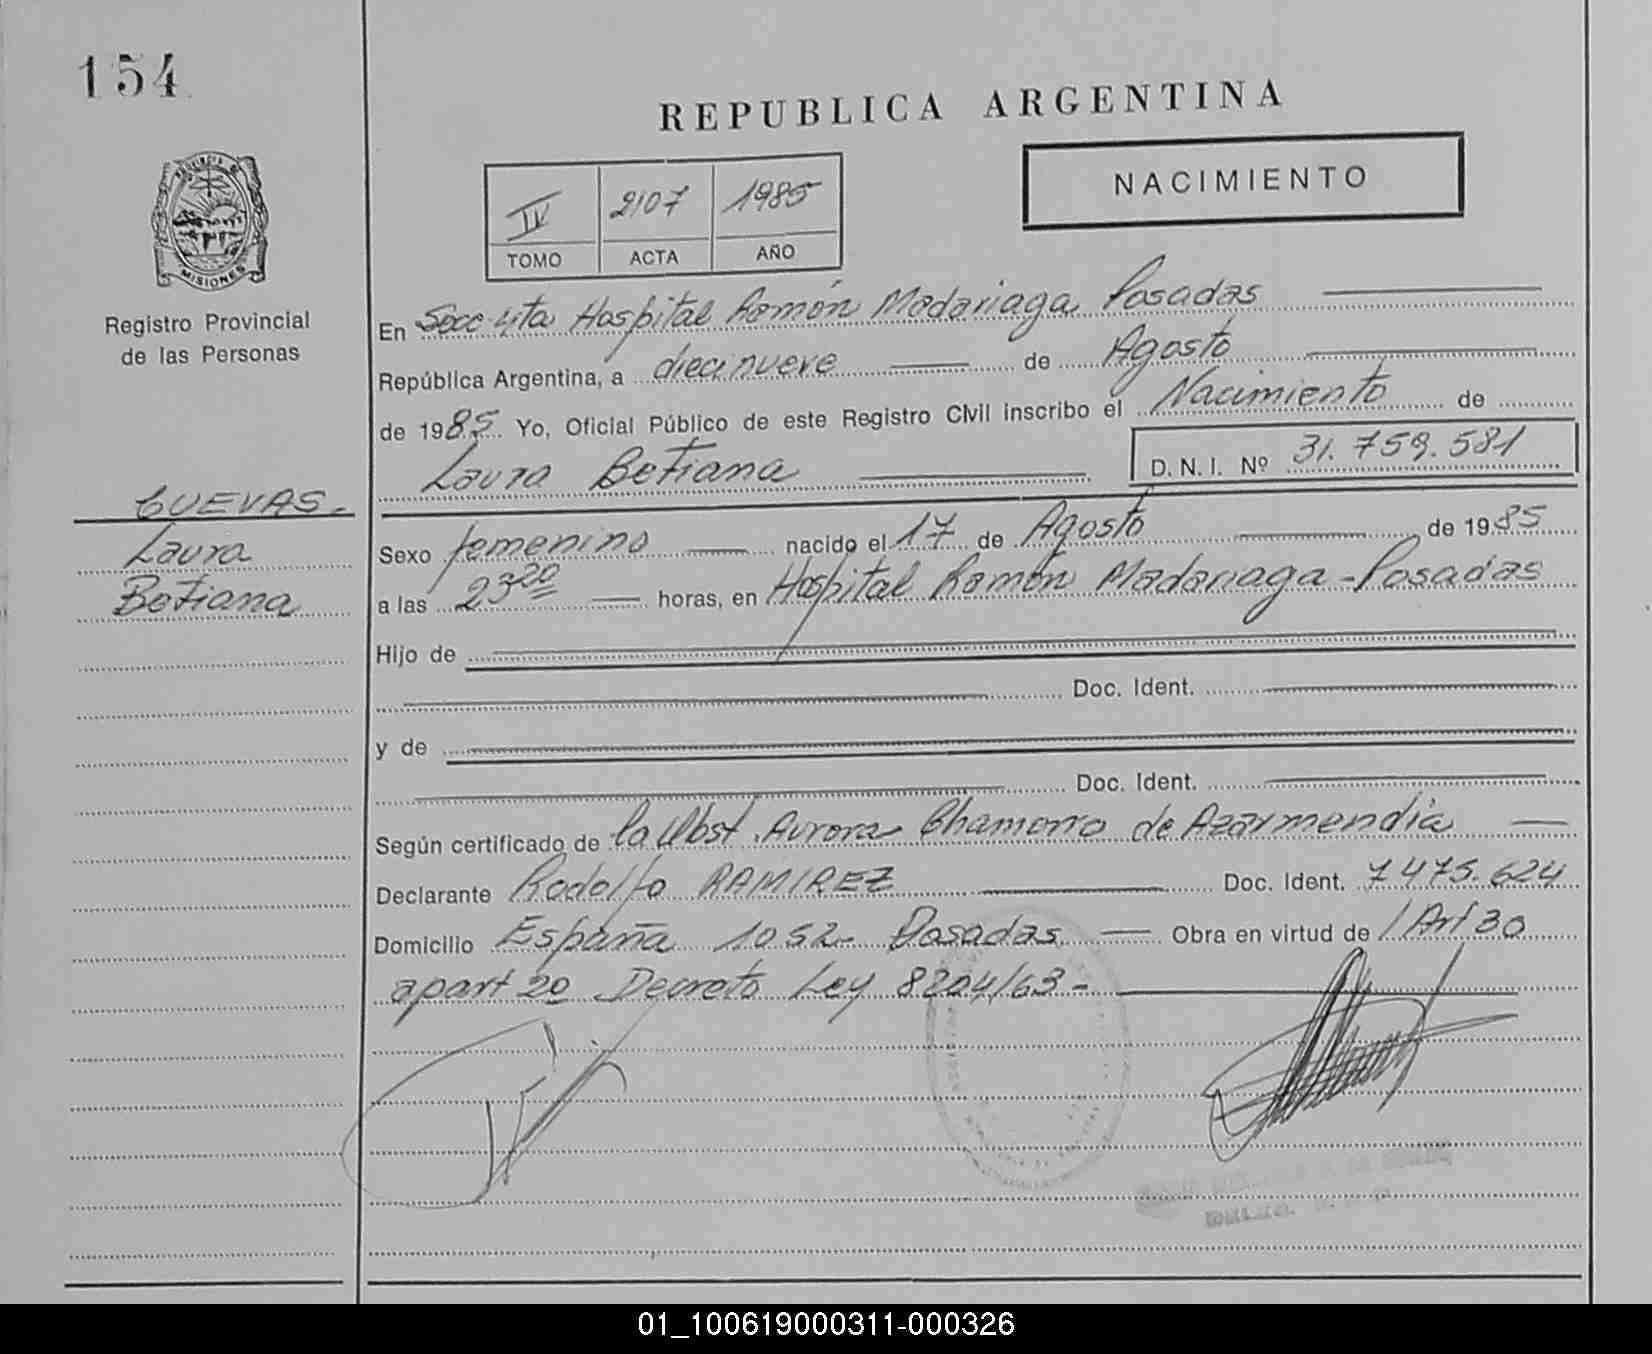 154
REPUBLICA ARGENTINA
NACIMIENTO
IV 2107 1985
TOMO ACTA AÑO
PROVINCIA DE
MISIONES
Registro Provincial
de las Personas
En Secc 4ta Hospital Ramón Madariaga Posadas
República Argentina, a diecinueve de Agosto
de 1985 Yo, Oficial Público de este Registro Civil inscribo el Nacimiento de
Laura Betiana D. N. I. Nº 31.759.581
CUEVAS.-
Laura
Betiana
Sexo femenino nacido el 17 de Agosto de 1985
a las 23 20 horas, en Hospital Ramón Madariaga - Posadas
Hijo de
Doc. Ident.
y de
Doc. Ident.
Según certificado de la Obst. Aurora Chamorro de Azarmendia
Declarante Rodolfo RAMIREZ Doc. Ident. 7475.624
Domicilio España 1052- Posadas Obra en virtud de / Art 30
apart 2o Decreto Ley 8204/63 -
01_100619000311-000326